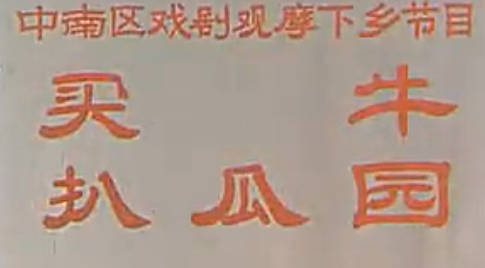 中南区戏剧观摩下乡节目
买牛
扒瓜园